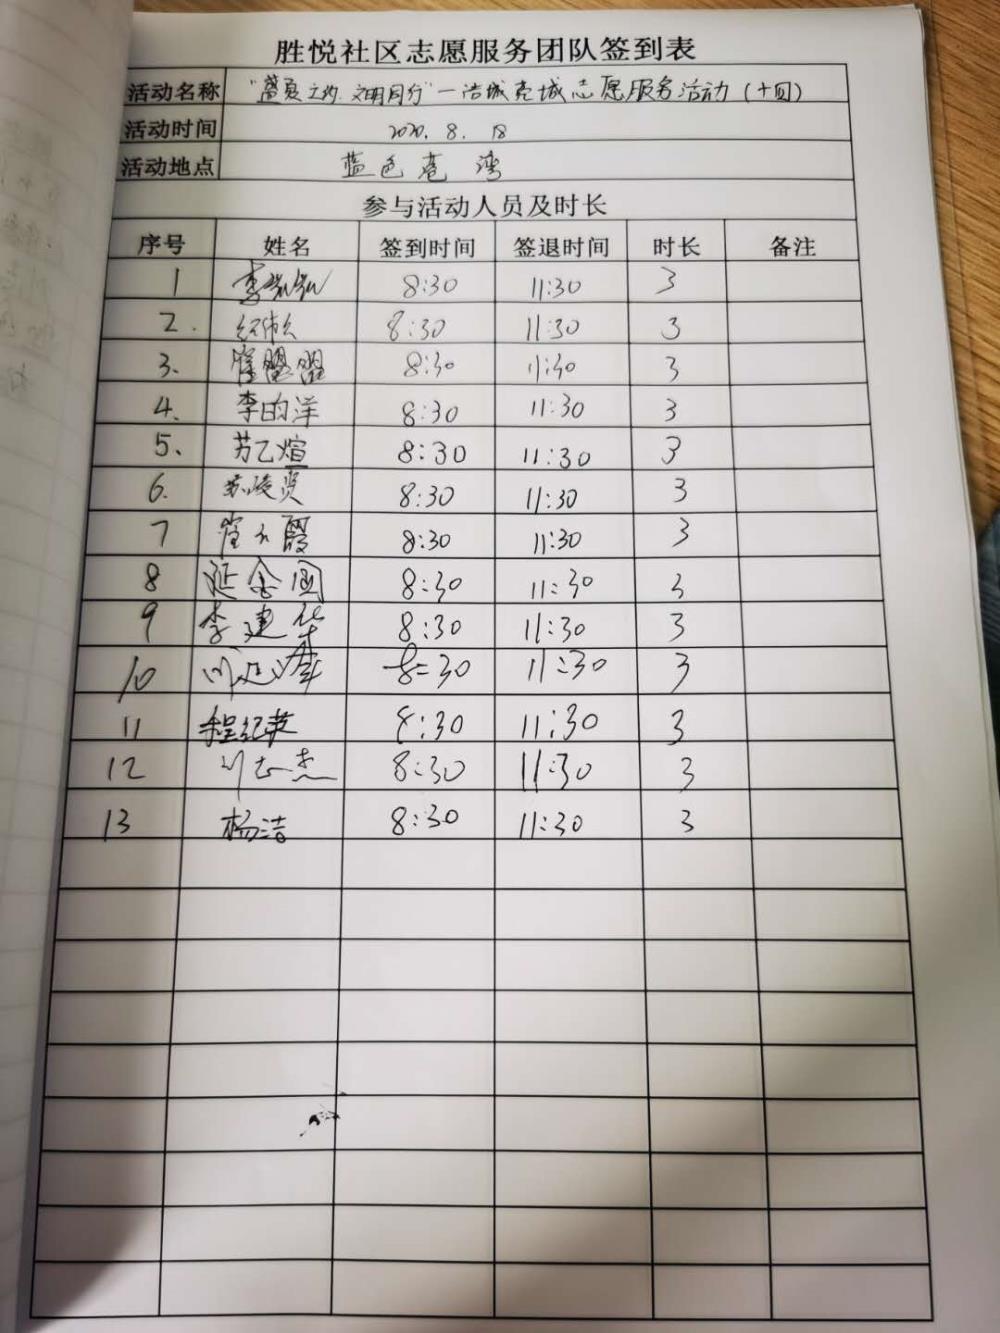 胜悦社区志愿服务团队签到表
活动名称 "盛夏之约.文明同行"—洁城志愿服务活动(十四)
活动时间 2020. 8. 18
活动地点 蓝色港湾
参与活动人员及时长
序号 姓名 签到时间 签退时间 时长 备注
1 李 8:30 11:30 3
2. 8:30 11:30 3
3、 崔盟盟 8:30 11:30 3
4、 李昀洋 8:30 11:30 3
5、 苏乙煊 8:30 11:30 3
6. 8:30 11:30 3
7 崔 霞 8:30 11:30 3
8 延金国 8:30 11:30 3
9 李建华 8:30 11:30 3
10 8:30 11:30 3
11 程纪英 8:30 11:30 3
12 杰 8:30 11:30 3
13 杨洁 8:30 11:30 3